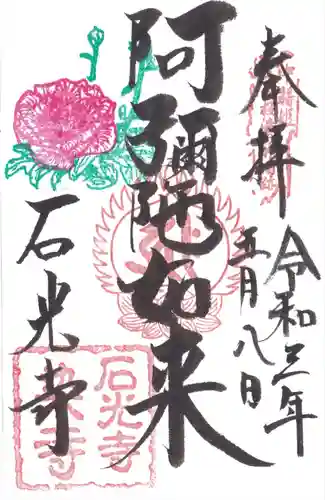 奉拝
令和三年
五月八日
阿彌陀如来
石光寺
石光寺